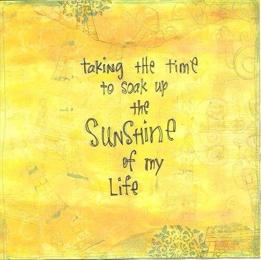 taking the time
to soak up
the
Sunshine
of my
Life